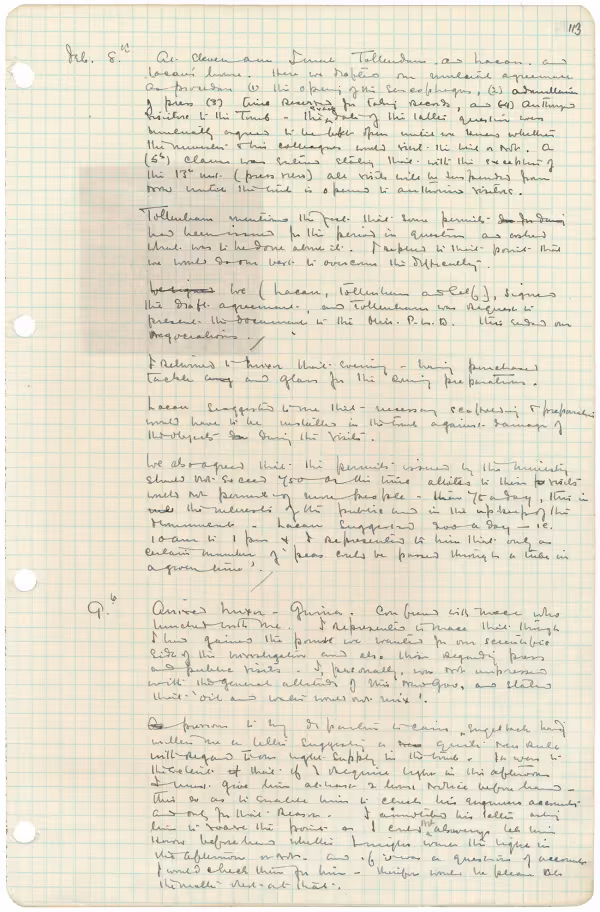 113
Feb. 8th At eleven am I met Tottenham and Lacau and
Lacau's house. Here we drafted our mutual agreement
as provided (1) the opening of the Sarcophagus, (2) admittance
of press (3) time reserved for taking records, and (4) Anthropo
visitors to the Tomb - the exact date of the latter question was
mutually agreed to be left open until we knew whether
the minister & his colleagues would visit the tomb or not. A
(5th) clause was entered stating that with the exception of
the 13th inst. (press view) all visits will be suspended from
now until the tomb is opened to authorised visitors.
Tottenham mentioned the fact that some permits
had been issued for the period in question and asked
what was to be done about it. I replied to that point that
we would do our best to overcome the difficulty.
We (Lacau, Tottenham and self), signed
the draft agreement, and Tottenham was request to
present the document to the Min. P.W.D. This ended our
negociations.
I returned to Luxor that evening - having purchased
tackle and glass for the coming preparations.
Lacau suggested to me that necessary scaffolding & preparation
would have to be installed in the tomb against damage of
the objects during the visits.
We also agreed that the permits issued by the ministry
should not exceed 750 as the time allotted to these visits
would not permit of more people - than 75 a day, this in
the interests of the public and in the upkeep of the
monuments - Lacau suggested 200 a day - i.e.
10 am to 1 pm & I represented to him that only a
certain number of 'peas could be passed through a tube in
a given time'.
9.th Arrived Luxor - Gurna. Conferred with Mace who
lunched with me. I represented to Mace that though
I had gained the points we wanted for our scientific
side of the investigation and also those regarding press
and public visits. I, personally, was not impressed
with the general attitude of this new Gov, and stated
that 'oil and water would not mix'.
previous to my departure to Cairo, Engelbach had
written me a letter suggesting a quite new rule
with regard to our light supply in the tomb. It was to
the extent that if I require light in the afternoon
I must give him at least 2 hours notice beforehand -
this so as to enable him to check his engineers accounts
and only for that reason. I answered his letter asking
him to waive the point as I could not always let him
know beforehand whether I might want the light in
the afternoon or not. and if it was a question of accounts
I would check them for him - therefore would he please let
the matter rest at that.